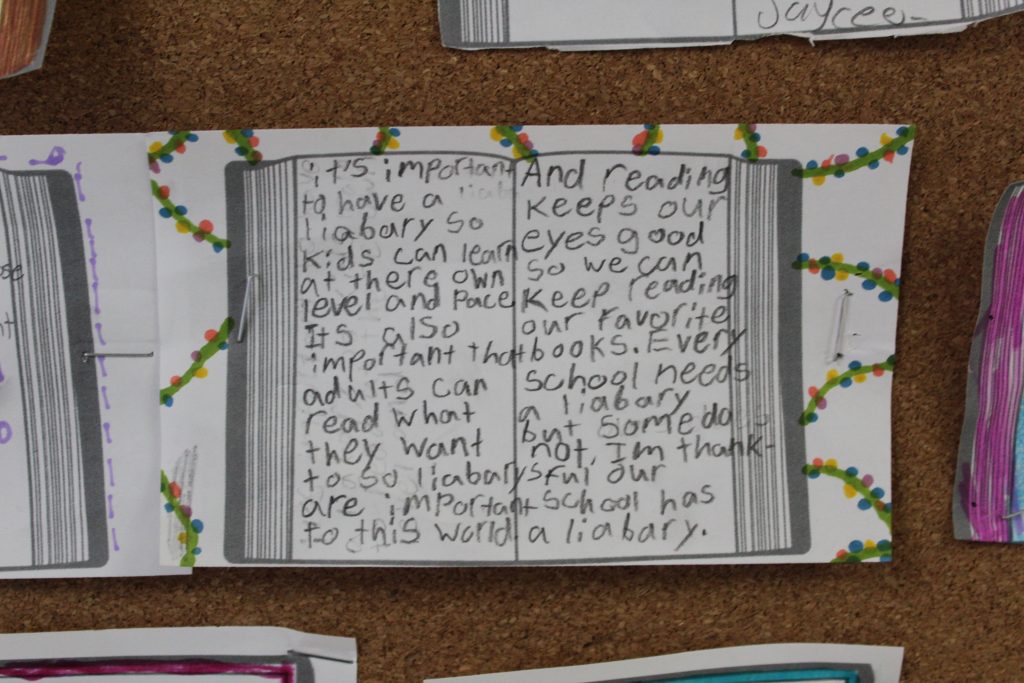 Jaycee
it's important
to have a
liabary so
kids can learn
at there own
level and Pace
Its also
important that
adults can
read what
they want
to so liabarys
are important
to this world
And reading
keeps our
eyes good
so we can
Keep reading
our Favorite
books. Every
school needs
a liabary
but some do
not, Im thank-
ful our
school has
a liabary.